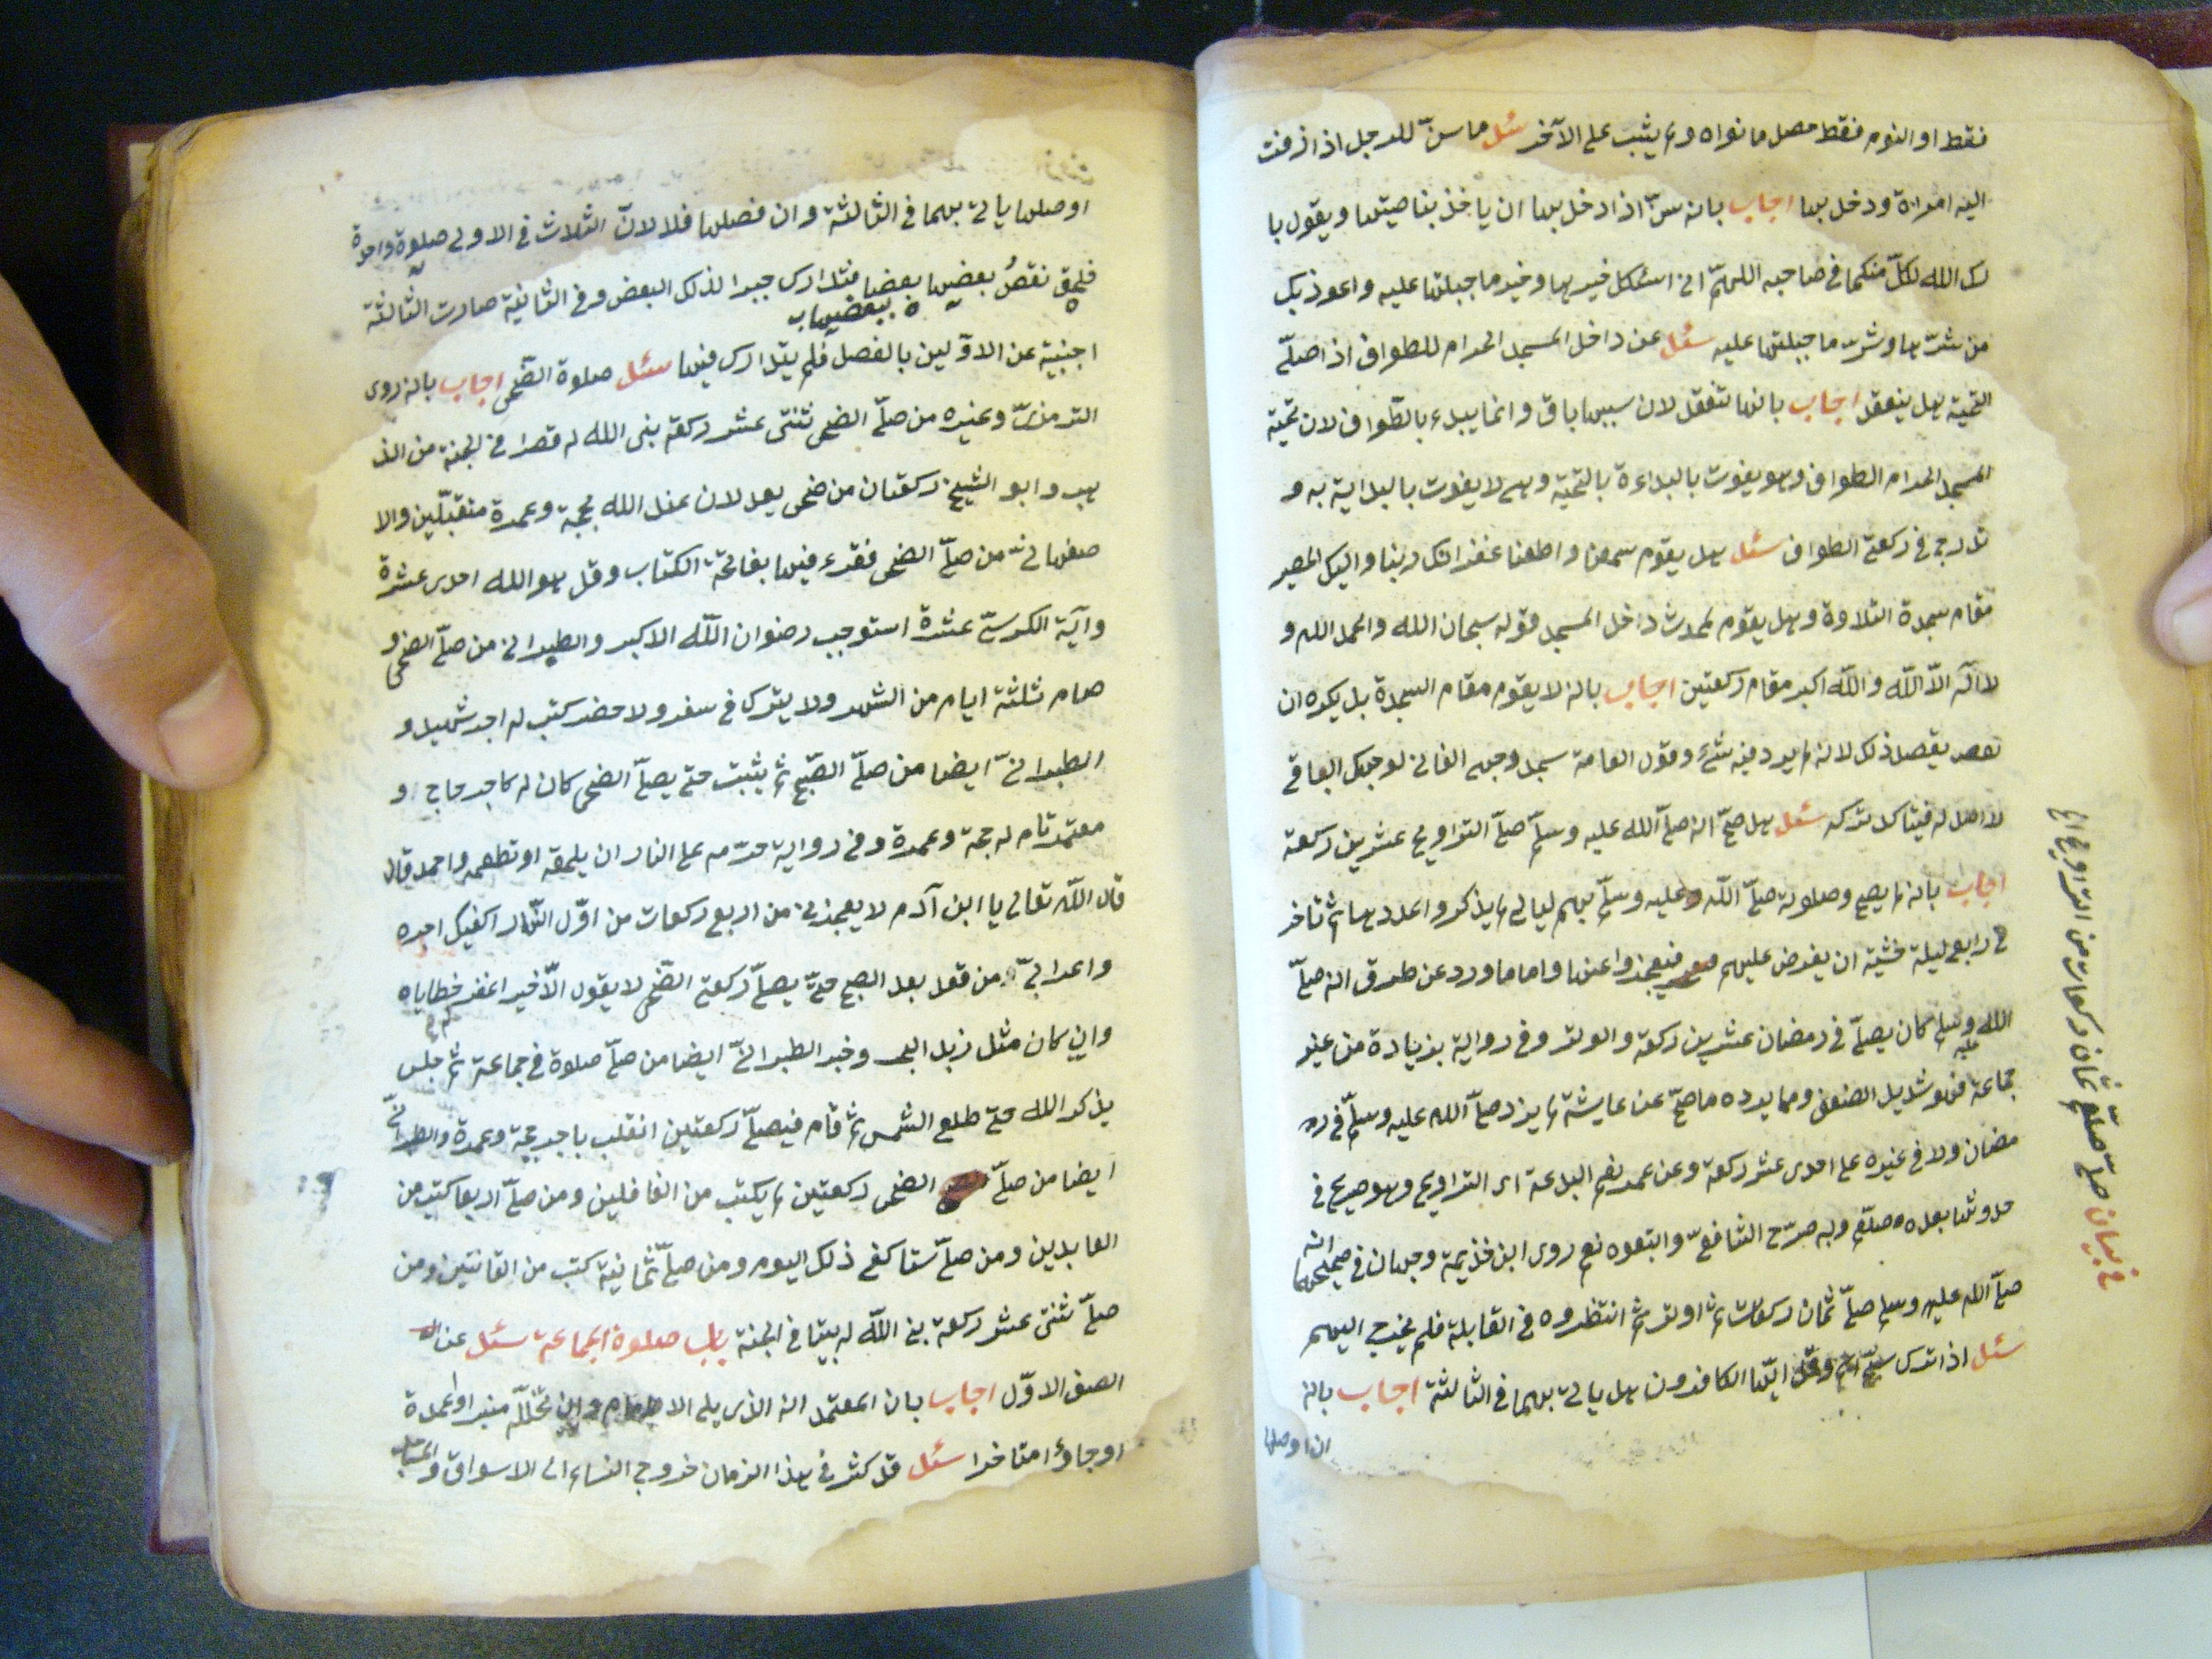 فقط او النوم فقط حصل ما نواه ولم يثبت على الآخر سئل ما سنّ للرجل اذا زفت
اليه امراة ودخل بها اجاب بانه سنّ اذا دخل بها ان ياخذ بناصيتها ويقول با
رك الله لكلّ منكما في صاحبه اللهمّ انى اسئلك خيرها وخير ما جبلتها عليه واعوذ بك
من شرّها وشرّ ما جبلتها عليه سئل عن داخل المسجد الحرام للطواف اذا صلّى
التحية هل ينعقد اجاب بانها تنعقد لان سببها باق وانما يبدء بالطّواف لان تحية
المسجد الحرام الطواف وهو يفوت بالبداءة بالتحية وهى لا يفوت بالبداية به و
تدرج في ركعتى الطواف سئل هل يقوم سمعنا واطعنا غفرانك ربنا واليك المصير
مقام سجدة التلاوة وهل يقوم لمحدث داخل المسجد قوله سبحان الله والحمد لله و
لا اله الّا اللّه واللّه اكبر مقام ركعتين اجاب بانه لا يقوم مقام السجدة بل يكره ان
يقصد ذلك لانه لم يرد فيه شئ وقول العامة سجد وجهى الفانى لوجهك الباقى
لا اصل له فيتاكد تركه سئل هل صحّ انه صلّى الله عليه وسلّم صلّى التراويح عشرين ركعة
اجاب بانه لم يصح وصلوته صلّى اللّه عليه وسلّم بهم ليالى لم يذكروا عددها ثم تاخر
في رابع ليلة خشية ان يفرض عليهم فيعجزوا عنها واما ما ورد عن طرق انه صلّى
الله عليه وسلم كان يصلّى في رمضان عشرين ركعة والوتر وفى رواية بزيادة من غير
جماعة فهو شديد الضعف ومما يرده ما صحّ عن عايشة لم يزد صلّى الله عليه وسلّم في ر
مضان ولا في غيره على احدى عشر ركعة وعن عمر نعم البدعة اى التراويح وهو صريح في
حدوثها بعده صلّعم وبه صرّح الشافعىّ واتبعوه نعم روى ابن خزيمة وحبان في صحيحهما انه
صلّى الله عليه وسلم صلّى ثمان ركعات ثم اوتر ثم انتظروه في القابلة فلم يخرج اليهم
سئل اذا ترك سبّح اسم وقل ايّها الكافرون هل ياتى بهما في الثالثة اجاب بانه
ان اوصلها
في بيان صلّى صلّعم ثمان ركعات من التراويح
اوصلها ياتى بهما في الثالثة وان فصلها فلا لانّ الثلاث في الاولى صلوة واحدة
فلحق نقصُ بعضها بعضا فتدارك جبرا لذلك البعض وفى الثانية صارت الثالثة
ببعضها
اجنبية عن الاوّلين بالفصل فلم يتدارك فيها سئل صلوة الضّحى اجاب بانه روى
الترمذىّ وغيره من صلّى الضحى ثنتى عشر ركعة بنى الله له قصرا في الجنة من الذ
هب وابو الشيخ ركعتان من ضحى يعدلان عند الله بحجة وعمرة متقبّلين والا
صفهانى من صلّى الضحى فقرء فيها بفاتحة الكتاب وقل هو الله احدى عشرة
وآية الكرسىّ عشرة استوجب رضوان اللّه الاكبر والطبرانى من صلّى الضحى و
صام ثلثة ايام من الشهر ولا يترك في سفر ولا حضر كتب له اجر شهيد و
الطبرانىّ ايضا من صلّى الصّبح ثم يثبت حتى يصلّى الضحى كان له كاجر حاج او
معتمر تام له حجة وعمرة وفى رواية حرّمه على النار ان يلحقه او تطعمه واحمد قال
قال اللّه تعالى يا ابن آدم لا يعجزنى من اربع ركعات من اوّل النّهار اكفيك اخره
واعرابىّ من قعد بعد الصبح حتّى يصلّى ركعتى الضّحى لا يقول الّا خيرا غفر خطاياه
وان كان مثل زبد البحر وخبر الطبرانىّ ايضا من صلّى صلوة في جماعة ثم جلس
يذكر الله حتى طلع الشمس ثم قام فيصلّى ركعتين انقلب باجر حجة وعمرة والطبرانىّ
ايضا من صلّى الضحى ركعتين لم يكتب من الغافلين ومن صلّى اربعا كتب من
العابدين ومن صلّى ستا كفى ذلك اليوم ومن صلّى ثمانية كتب من القانتين ومن
صلّى ثنتى عشر ركعة بنى اللّه له بيتا في الجنة باب صلوة الجماعة سئل عن
الصف الاوّل اجاب بان المعتمد انه الذى يلى الامام وان تخلّله منبر او عمدة
او جاؤا متاخرا سئل قد كثر في هذا الزمان خروج النساء الى الاسواق